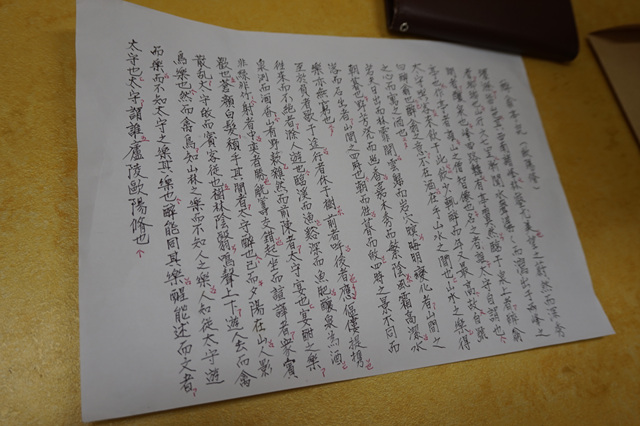 醉翁亭記（歐陽脩）
環滁皆山也其西南諸峰林壑尤美望之蔚然而深秀
者瑯琊也山行六七里漸聞水聲潺潺而瀉出于兩峰之
間者釀泉也峰回路轉有亭翼然臨于泉上者醉翁
亭也作亭者誰山之僧智僊也名之者誰太守自謂也
太守與客來飲于此飲少輒醉而年又最高故自號
曰醉翁也醉翁之意不在酒在乎山水之間也山水之樂得
之心而寓之酒也
若夫日出而林霏開雲歸而岩穴暝晦明變化者山間之
朝暮也野芳發而幽香嘉木秀而繁陰風霜高潔水
落而石出者山間之四時也朝而往暮而歸四時之景不同而
樂亦無窮也
至於負者歌于途行者休于樹前者呼後者應傴僂提攜
往來而不絕者滁人遊也臨溪而漁谿深而魚肥釀泉為酒
泉洌而酒香山肴野蔌雜然而前陳者太守宴也宴酣之樂
非絲非竹射者中弈者勝觥籌交錯起坐而諠譁者眾賓
歡也蒼顏白髮頹乎其間者太守醉也已而夕陽在山人影
散亂太守歸而賓客從也樹林陰翳鳴聲上下遊人去而禽
鳥樂也然而禽鳥知山林之樂而不知人之樂人知從太守遊
而樂而不知太守之樂其樂也醉能同其樂醒能述而文者
太守也太守謂誰廬陵歐陽脩也